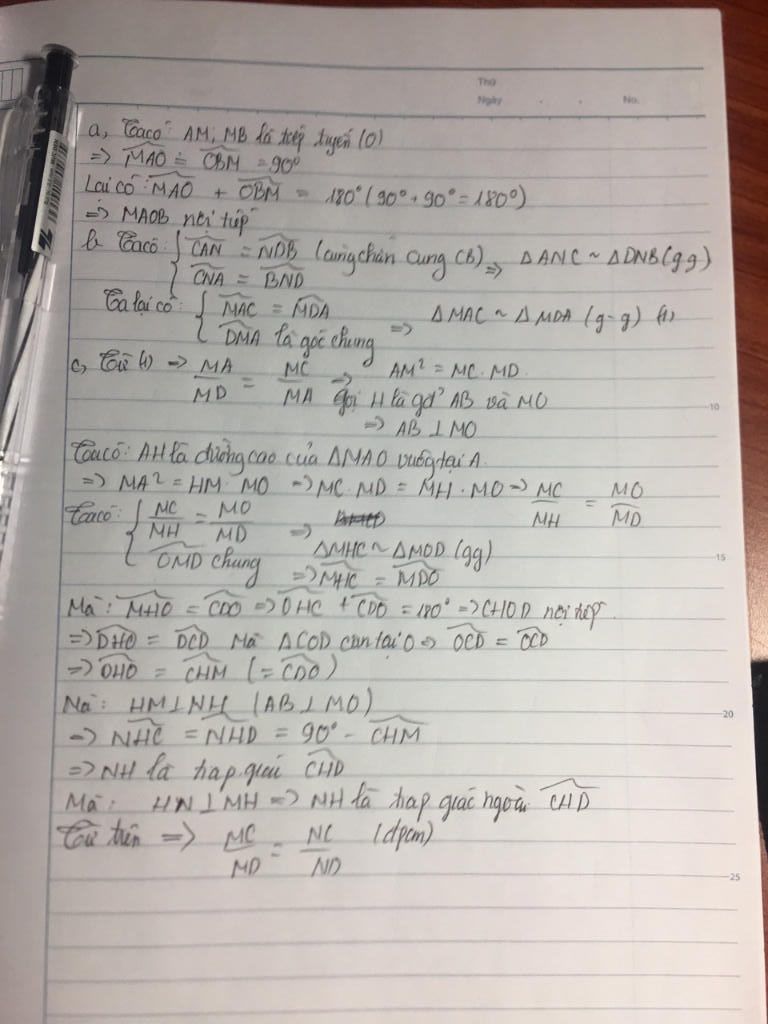 Thứ
Ngày . . No.
a, Ta có: AM, MB là tiếp tuyến (O)
=> MAO = OBM = 90°
Lại có: MAO + OBM = 180° (90° + 90° = 180°)
=> MAOB nội tiếp
b, Ta có: { CAN = NDB (cùng chắn cung CB) => ΔANC ~ ΔDNB (gg)
{ CNA = BND
Ta lại có: { MAC = MDA => ΔMAC ~ ΔMDA (g-g) (1)
{ DMA là góc chung
c, Từ (1) => MA/MD = MC/MA => AM² = MC.MD.
gọi H là gđ² AB và MO
10
=> AB ⊥ MO
Ta có: AH là đường cao của ΔMAO vuông tại A.
=> MA² = HM. MO => MC. MD = MH. MO => MC/MH = MO/MD
Ta có: { MC/MH = MO/MD =>
{ OMD chung ΔMHC ~ ΔMOD (gg)
15
=> MHC = MDO
Mà: MHO = CDO => OHC + CDO = 180° => CHOD nội tiếp.
=> DHO = DCD Mà ΔCOD cân tại O => OCD = OCD
=> OHO = CHM (= CDO)
Mà: HM ⊥ NH (AB ⊥ MO)
20
=> NHC = NHD = 90° - CHM
=> NH là p.giác CHD
Mà: HN ⊥ MH => NH là p.giác ngoài CHD
Từ trên => MC/MD = NC/ND (đpcm)
25